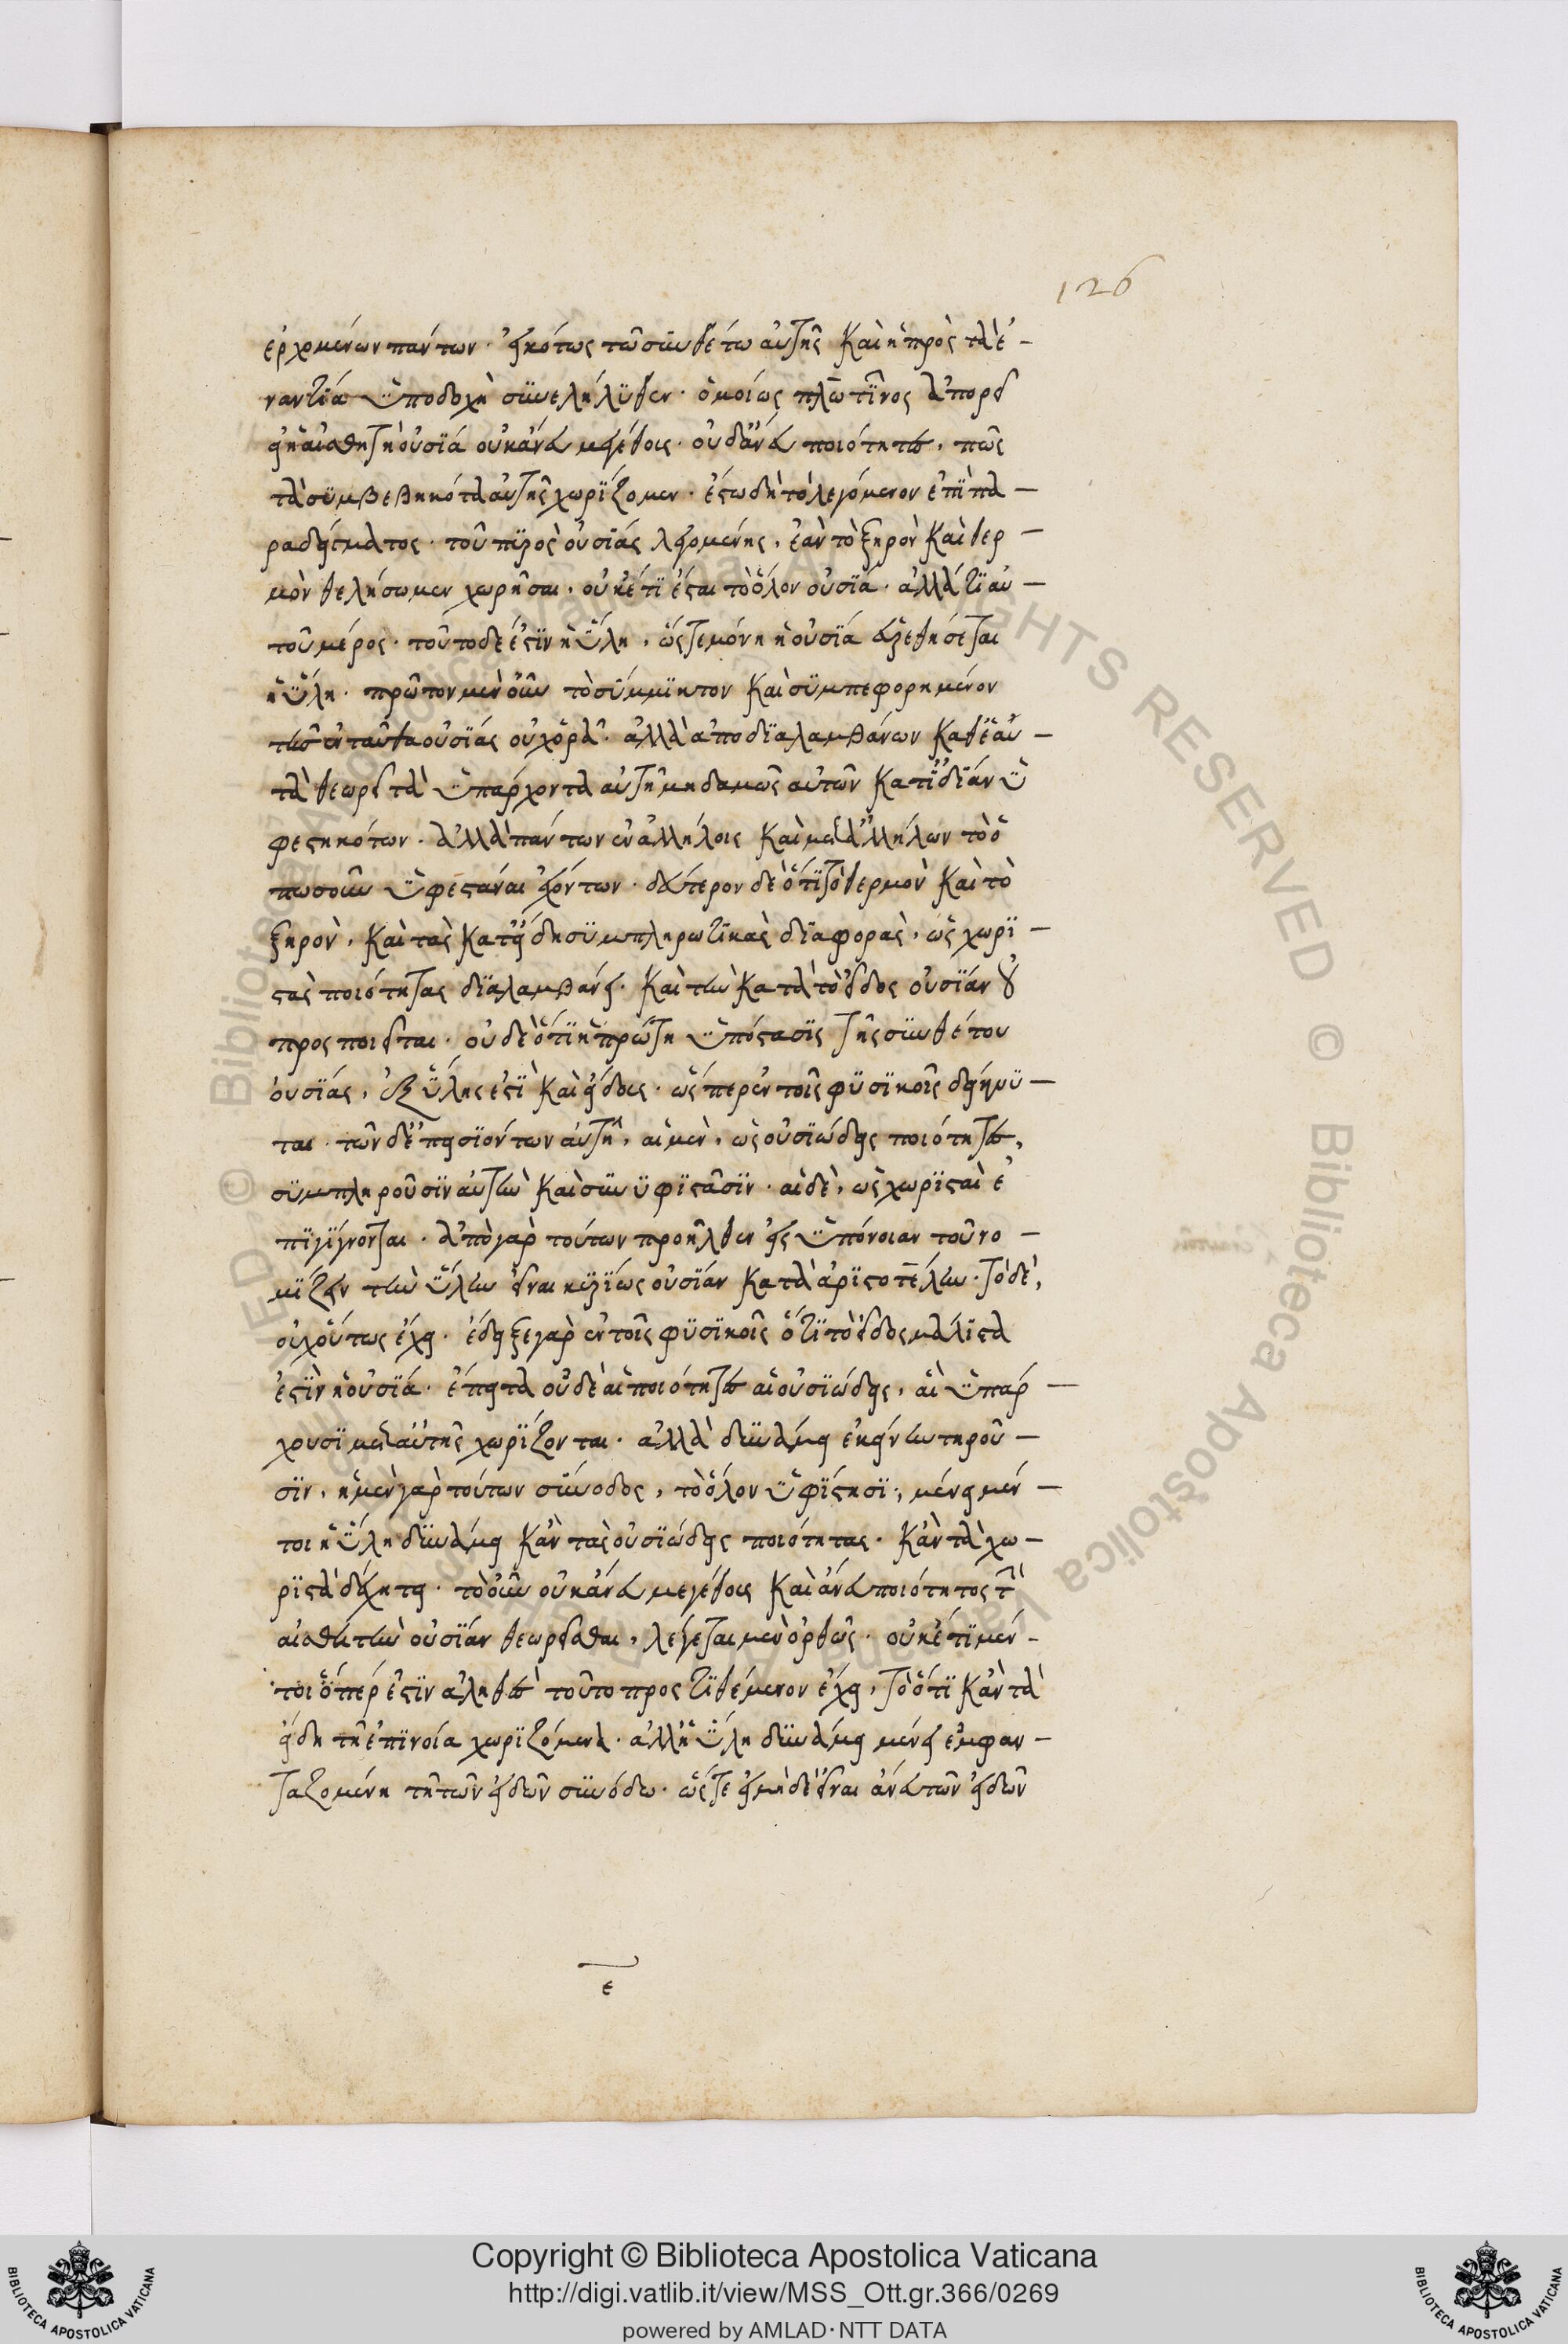 126
ερχομένων πάντων· εἰκότως τῶ συνθέτω αὐτῆς καὶ ἡ πρὸς τὰ ἐ-
ναντία ὑποδοχὴ συνελήλυθεν· ὁμοίως πλωτῖνος ἀπορεῖ
εἰ ἡ αἰσθητὴ οὐσία οὐκ ἄνευ μεγέθους· οὐδ' ἄνευ ποιότητος, πῶς
τὰ συμβεβηκότα αὐτῆς χωρίζομεν· ἔστω δὴ τὸ λεγόμενον ἐπὶ πα-
ραδείγματος· τοῦ πυρὸς οὐσίας λεγομένης, ἐὰν τὸ ξηρὸν καὶ θερ-
μὸν θελήσωμεν χωρῆσαι, οὐκέτι ἔσται τὸ ὅλον οὐσία· ἀλλά τι αὐ-
τοῦ μέρος· τοῦτο δέ ἐστιν ἡ ὕλη, ὥστε μόνη ἡ οὐσία εὑρεθήσεται
ἡ ὕλη· πρῶτον μὲν οὖν τὸ σύμμικτον καὶ συμπεφορημένον
τῆς ἐνταῦθα οὐσίας οὐχ ὁρᾶ· ἀλλὰ ἀποδιαλαμβάνων καθ' ἑαυ-
τὰ θεωρεῖ τὰ ὑπάρχοντα αὐτῆ μηδαμῶς αὐτῶν κατ' ἰδίαν ὑ
φεστηκότων· ἀλλὰ πάντων ἐν ἀλλήλοις καὶ μετ' ἀλλήλων τὸ ὁ
πωσοῦν ὑφεστάναι ἐχόντων· δεύτερον δὲ ὅτι τὸ θερμὸν καὶ τὸ
ξηρὸν, καὶ τὰς κατ' εἴδη συμπληρωτικὰς διαφορὰς, ὡς χωρι-
στὰς ποιότητας διαλαμβάνει· καὶ τὴν κατὰ τὸ εἶδος οὐσίαν οὐ
προσποιεῖται· οὐδὲ ὅτι ἡ πρώτη ὑπόστασις τῆς συνθέτου
οὐσίας, ἐξ ὕλης ἐστὶ καὶ εἴδους· ὥσπερ ἐν τοῖς φυσικοῖς διήνυ-
ται· τῶν δ' ἐπεισιόντων αὐτῆ, αἱ μὲν, ὡς οὐσιώδεις ποιότητες,
συμπληροῦσιν αὐτὴν καὶ συνυφιστᾶσιν· αἱ δὲ, ὡς χωρισταὶ ἐ
πιγίγνονται· ἀπὸ γὰρ τούτων προῆλθεν εἰς ὑπόνοιαν τοῦ νο-
μίζειν τὴν ὕλην εἶναι κυρίως οὐσίαν κατὰ ἀριστοτέλην· τὸ δὲ,
οὐχ οὕτως ἔχει· ἔδειξε γὰρ ἐν τοῖς φυσικοῖς ὅτι τὸ εἶδος μάλιστα
ἐστὶν ἡ οὐσία· ἔπειτα οὐδὲ αἱ ποιότητες αἱ οὐσιώδεις, αἳ ὑπάρ-
χουσι μετ' αὐτῆς χωρίζονται· ἀλλὰ δυνάμει ἐκείνην τηροῦ-
σιν, ἡ μὲν γὰρ τούτων σύνοδος, τὸ ὅλον ὑφίστησι·, μένει μέν-
τοι ἡ ὕλη δυνάμει κἂν τὰς οὐσιώδεις ποιότητας· κἂν τὰ χω-
ριστὰ δέχηται· τὸ οὖν οὐκ ἄνευ μεγέθους καὶ ἄνευ ποιότητος τὴν
αἰσθητὴν οὐσίαν θεωρεῖσθαι, λέγεται μὲν ὀρθῶς· οὐκέτι μέν-
τοι ὅπερ ἐστὶν ἀληθὲς τοῦτο προστιθέμενον ἔχει, τὸ ὅτι κἂν τὰ
εἴδη τῆ ἐπινοία χωριζόμενα· ἀλλ' ἡ ὕλη δυνάμει μένει ἐμφαν-
ταζομένη τῆ τῶν εἰδῶν συνόδω· ὥστε εἰ μηδὲ εἶναι ἄνευ τῶν εἰδῶν
ε
Copyright © Biblioteca Apostolica Vaticana
http://digi.vatlib.it/view/MSS_Ott.gr.366/0269
powered by AMLAD·NTT DATA